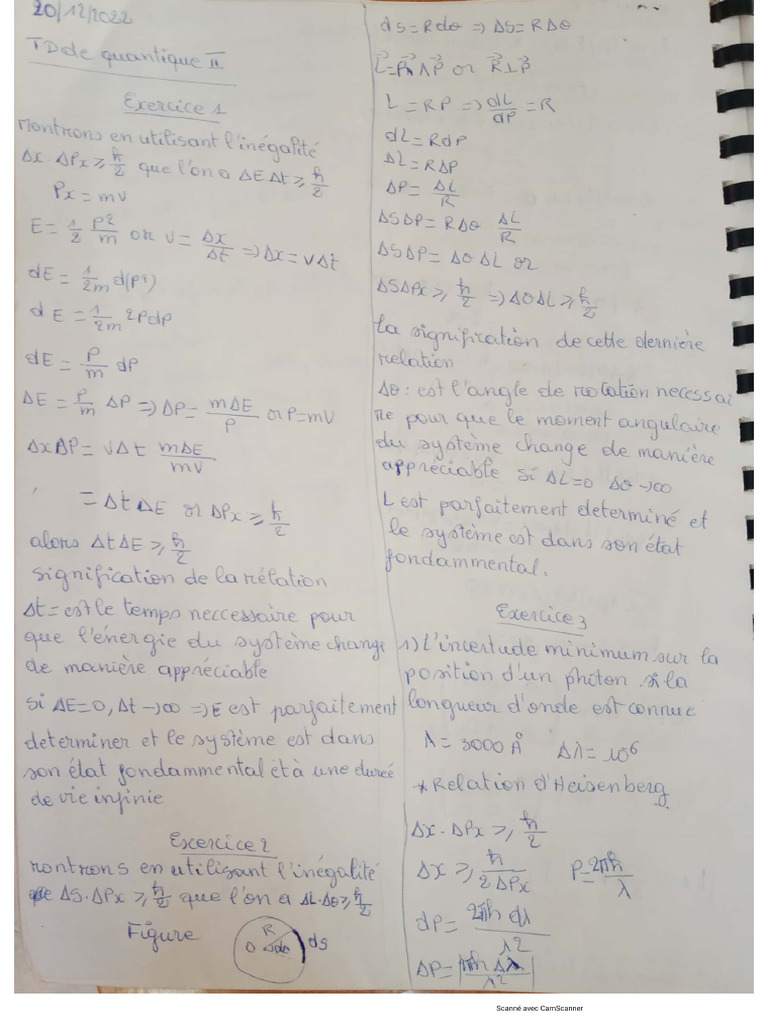 20/12/2022
TD de quantique II
Exercice 1
Montrons en utilisant l'inégalité
Δx·ΔPx ≥ ħ/2 que l'on a ΔEΔt ≥ ħ/2
Px = mv
E = 1/2 P²/m or v = Δx/Δt ⇒ Δx = vΔt
dE = 1/2m d(P²)
dE = 1/2m 2PdP
dE = P/m dP
ΔE = P/m ΔP ⇒ ΔP = mΔE/P or P = mv
ΔxΔP = vΔt mΔE/mv
= Δt ΔE or ΔPx ≥ ħ/2
alors ΔtΔE ≥ ħ/2
signification de la rélation
Δt = est le temps neccessaire pour
que l'énergie du système change
de manière appréciable
si ΔE=0, Δt→∞ ⇒ E est parfaitement
determiner et le système est dans
son état fondammental et à une durée
de vie infinie
Exercice 2
Montrons en utilisant l'inégalité
ΔS·ΔPx ≥ ħ/2 que l'on a ΔL·Δθ ≥ ħ/2
Figure
R
O dθ
ds
ds = Rdθ ⇒ ΔS = RΔθ
L = P ∧ P or R ⊥ P
L = RP ⇒ dL/dP = R
dL = RdP
ΔL = RΔP
ΔP = ΔL/R
ΔSΔP = RΔθ ΔL/R
ΔSΔP = Δθ ΔL or
ΔSΔPx ≥ ħ/2 ⇒ ΔθΔL ≥ ħ/2
la signification de cette dernière
relation
Δθ : est l'angle de rotation necessai
re pour que le moment angulaire
du système change de manière
appréciable si ΔL=0 Δθ→∞
L est parfaitement determiné et
le système est dans son état
fondammental.
Exercice 3
1) L'incertude minimum sur la
position d'un photon si la
longueur d'onde est connue
λ = 3000 Å Δλ = 10⁶
* Relation d'Heisenberg
Δx·ΔPx ≥ ħ/2
Δx ≥ ħ/2ΔPx P = 2πħ/λ
dP = 2πħ dλ/λ²
ΔP = |πħ Δλ/λ²|
Scanné avec CamScanner